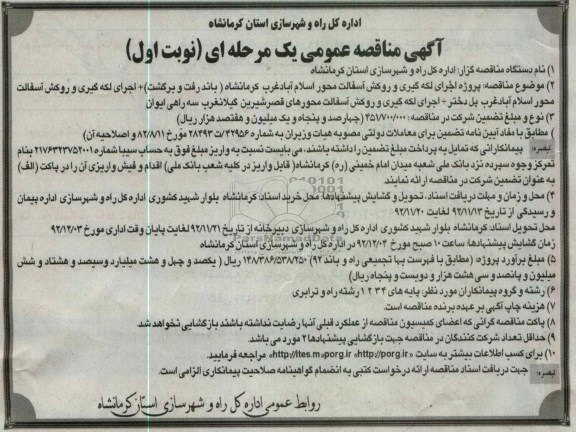 اداره کل راه و شهرسازی استان کرمانشاه
آگهی مناقصه عمومی یک مرحله ای (نوبت اول)
۱) نام دستگاه مناقصه گزار: اداره کل راه و شهرسازی استان کرمانشاه
۲) موضوع مناقصه: پروژه اجرای لکه گیری و روکش آسفالت محور اسلام آبادغرب کرمانشاه ( باند رفت و برگشت)+ اجرای لکه گیری و روکش آسفالت
محور اسلام آبادغرب پل دختر + اجرای لکه گیری و روکش آسفالت محورهای قصرشیرین گیلانغرب سه راهی ایوان
۳) نوع و مبلغ تضمین شرکت در مناقصه: ۴۵۱/۷۰۰/۰۰۰ (چهارصد و پنجاه و یک میلیون و هفتصد هزار ریال)
( مطابق با مفاد آیین نامه تضمین برای معاملات دولتی مصوبه هیات وزیران به شماره ۴۲۹۵۶/ت ۲۸۴۹۳ مورخ ۸۲/۸/۱۱ و اصلاحیه آن)
تبصره: پیمانکارانی که تمایل به پرداخت مبلغ تضمین را داشته باشند، می بایست نسبت به واریز مبلغ فوق به حساب سیبا شماره ۲۱۷۶۴۳۲۳۷۵۲۰۰۱ بنام
تمرکز وجوه سپرده نزد بانک ملی شعبه میدان امام خمینی (ره) کرمانشاه( قابل واریز در کلیه شعب بانک ملی) اقدام و فیش واریزی آن را در پاکت (الف)
به عنوان تضمین شرکت در مناقصه ارائه نمایند
۴) محل و زمان و مهلت دریافت اسناد، تحویل و گشایش پیشنهادها: محل خرید اسناد کرمانشاه بلوار شهید کشوری اداره کل راه و شهرسازی اداره پیمان
و رسیدگی از تاریخ ۹۲/۱۱/۱۳ لغایت ۹۲/۱۱/۲۰
محل تحویل اسناد کرمانشاه بلوار شهید کشوری اداره کل راه و شهرسازی دبیرخانه از تاریخ ۹۲/۱۱/۲۱ لغایت پایان وقت اداری مورخ ۹۲/۱۲/۰۳
زمان گشایش پیشنهادها: ساعت ۱۰ صبح مورخ ۹۲/۱۲/۰۴ در اداره کل راه و شهرسازی استان کرمانشاه
۵) مبلغ برآورد پروژه (مطابق با فهرست بها تجمیعی راه و باند ۹۲) ۱۴۸/۳۸۶/۵۳۸/۲۵۰ ریال ( یکصد و چهل و هشت میلیارد و سیصد و هشتاد و شش
میلیون و پانصد و سی هشت هزار و دویست و پنجاه ریال)
۶) رشته و گروه پیمانکاران مورد نظر: پایه های ۴ ۳ ۲ ۱ رشته راه و ترابری
۷) هزینه چاپ آگهی بر عهده برنده مناقصه است.
۸) پاکت مناقصه گرانی که اعضای کمیسیون مناقصه از عملکرد قبلی آنها رضایت نداشته باشند بازگشایی نخواهد شد
۹) حداقل تعداد شرکت کنندگان در مناقصه جهت بازگشایی پیشنهادها ۲ مورد می باشد.
۱۰) برای کسب اطلاعات بیشتر به سایت «http://porg.ir» «http://ites.mporg.ir» مراجعه فرمایید.
تبصره: جهت دریافت اسناد مناقصه ارائه درخواست کتبی به انضمام گواهینامه صلاحیت پیمانکاری الزامی است.
روابط عمومی اداره کل راه و شهرسازی استان کرمانشاه